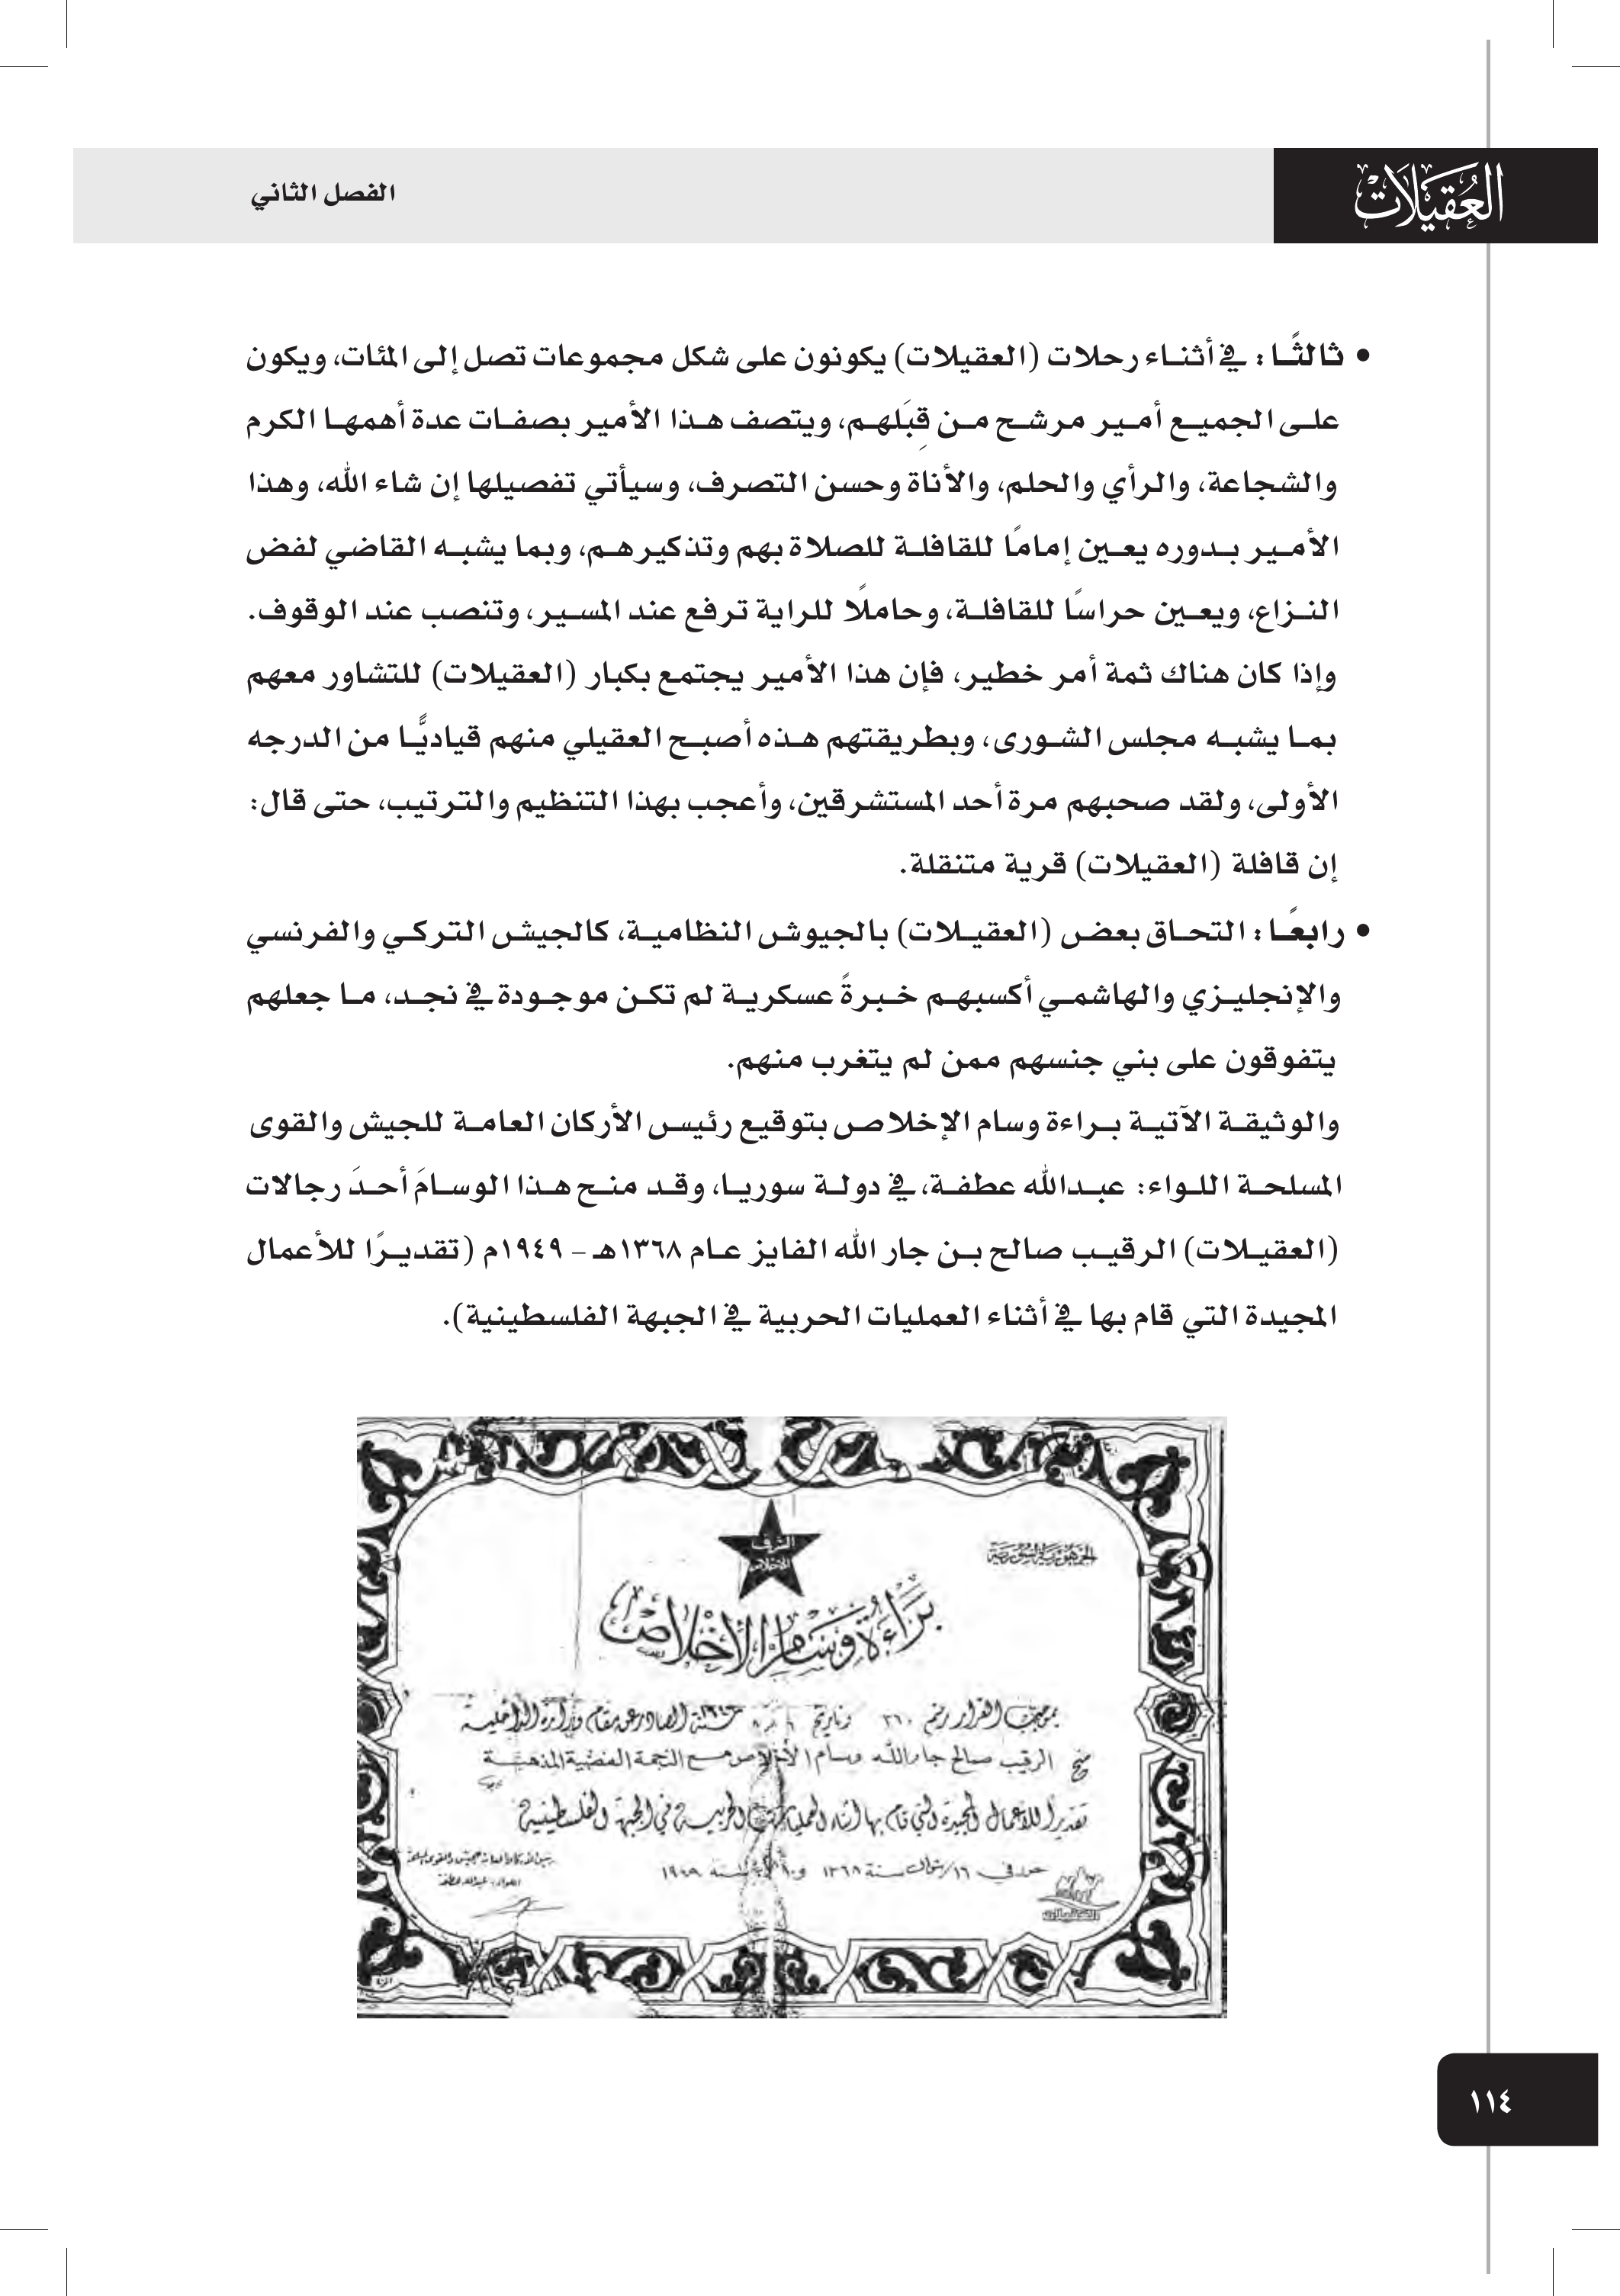 العُقيلات
الفصل الثاني
• ثالثًا: في أثناء رحلات (العقيلات) يكونون على شكل مجموعات تصل إلى المئات، ويكون
على الجميع أمير مرشح من قِبَلهم، ويتصف هذا الأمير بصفات عدة أهمها الكرم
والشجاعة، والرأي والحلم، والأناة وحسن التصرف، وسيأتي تفصيلها إن شاء الله، وهذا
الأمير بدوره يعين إمامًا للقافلة للصلاة بهم وتذكيرهم، وبما يشبه القاضي لفض
النزاع، ويعين حراسًا للقافلة، وحاملًا للراية ترفع عند المسير، وتنصب عند الوقوف.
وإذا كان هناك ثمة أمر خطير، فإن هذا الأمير يجتمع بكبار (العقيلات) للتشاور معهم
بما يشبه مجلس الشورى، وبطريقتهم هذه أصبح العقيلي منهم قياديًّا من الدرجه
الأولى، ولقد صحبهم مرة أحد المستشرقين، وأعجب بهذا التنظيم والترتيب، حتى قال:
إن قافلة (العقيلات) قرية متنقلة.
• رابعًا: التحاق بعض (العقيلات) بالجيوش النظامية، كالجيش التركي والفرنسي
والإنجليزي والهاشمي أكسبهم خبرةً عسكرية لم تكن موجودة في نجد، ما جعلهم
يتفوقون على بني جنسهم ممن لم يتغرب منهم.
والوثيقة الآتية براءة وسام الإخلاص بتوقيع رئيس الأركان العامة للجيش والقوى
المسلحة اللواء: عبدالله عطفة، في دولة سوريا، وقد منح هذا الوسامَ أحدَ رجالات
(العقيلات) الرقيب صالح بن جار الله الفايز عام ١٣٦٨هـ – ١٩٤٩م (تقديرًا للأعمال
المجيدة التي قام بها في أثناء العمليات الحربية في الجبهة الفلسطينية).
الشرف
الاخلاص
الجمهورية السورية
براءة وسام الإخلاص
بموجب القرار رقم ٣٦٠ وتاريخ الصادر عن مقام وزارة الداخلية
منح الرقيب صالح جارالله وسام الاخلاص مع النجمة الفضية المذهبة
تقديراً للأعمال المجيدة التي قام بها أثناء العمليات الحربية في الجبهة الفلسطينية
في ١٦/شوال سنة ١٣٦٨ و سنة ١٩٤٩
رئيس الأركان العامة للجيش والقوى المسلحة
اللواء: عبدالله عطفة
العقيلات
١١٤